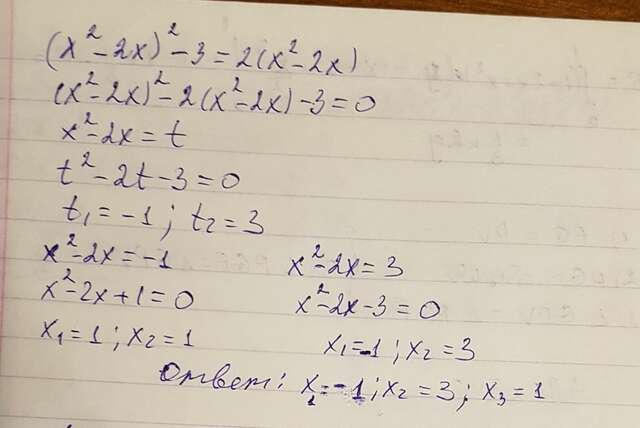 (x² - 2x)² - 3 = 2(x² - 2x)
(x² - 2x)² - 2(x² - 2x) - 3 = 0
x² - 2x = t
t² - 2t - 3 = 0
t₁ = -1 ; t₂ = 3
x² - 2x = -1
x² - 2x + 1 = 0
x₁ = 1 ; x₂ = 1
x² - 2x = 3
x² - 2x - 3 = 0
x₁ = -1 ; x₂ = 3
Ответ: x₁ = -1 ; x₂ = 3 ; x₃ = 1